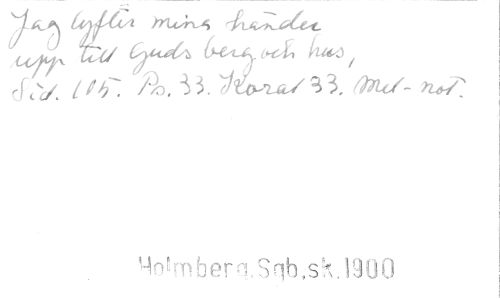 Jag lyfter mina händer
upp till Guds berg och hus,
Sid. 105. Ps. 33. Koral 33. Mel-not.
Holmberg.Sgb,sk.1900